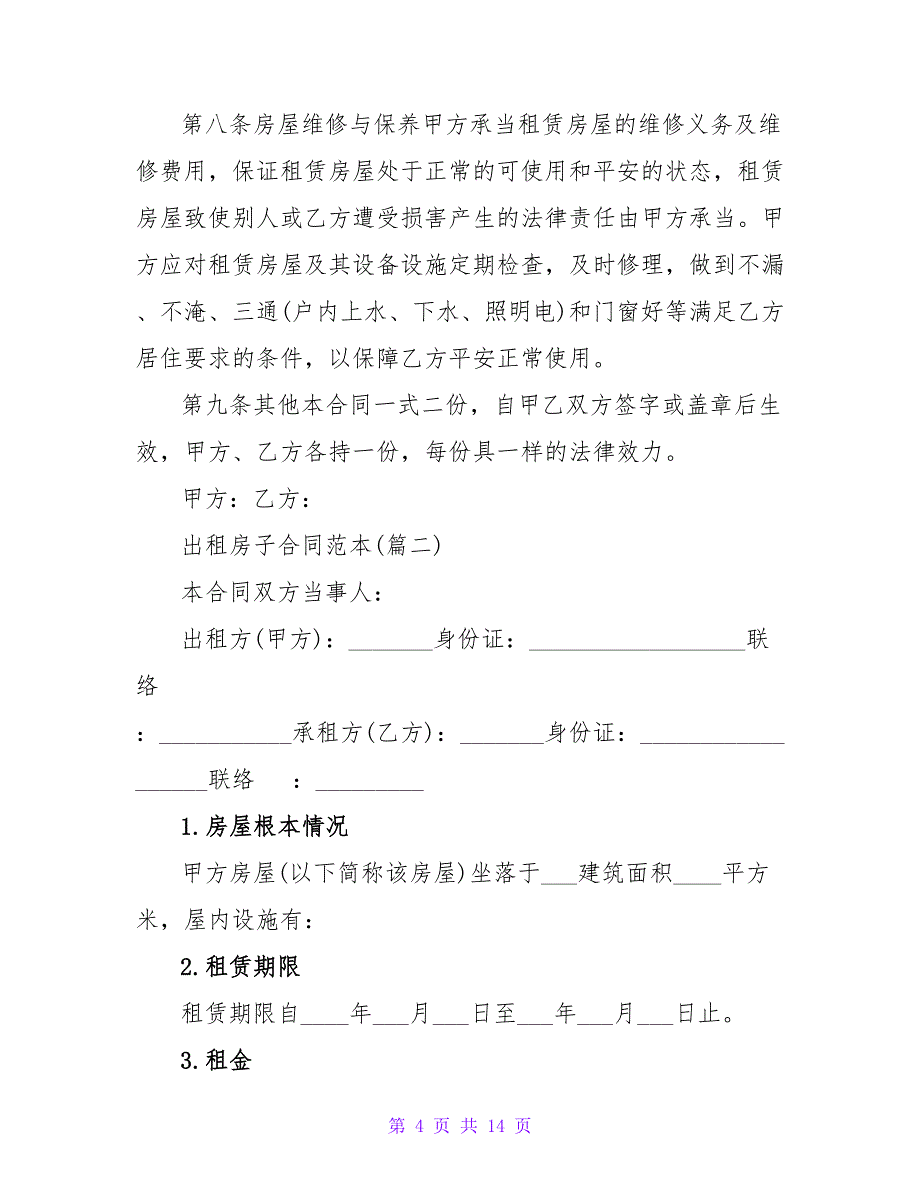 第八条房屋维修与保养甲方承当租赁房屋的维修义务及维
修费用，保证租赁房屋处于正常的可使用和平安的状态，租赁
房屋致使别人或乙方遭受损害产生的法律责任由甲方承当。甲
方应对租赁房屋及其设备设施定期检查，及时修理，做到不漏
、不淹、三通(户内上水、下水、照明电)和门窗好等满足乙方
居住要求的条件，以保障乙方平安正常使用。
第九条其他本合同一式二份，自甲乙双方签字或盖章后生
效，甲方、乙方各持一份，每份具一样的法律效力。
甲方：乙方：
出租房子合同范本(篇二)
本合同双方当事人：
出租方(甲方)：_______身份证：__________________联
络
：___________承租方(乙方)：_______身份证：____________
______联络 ：_________
1.房屋根本情况
甲方房屋(以下简称该房屋)坐落于___建筑面积____平方
米，屋内设施有：
2.租赁期限
租赁期限自____年___月___日至___年___月___日止。
3.租金
第 4 页 共 14 页